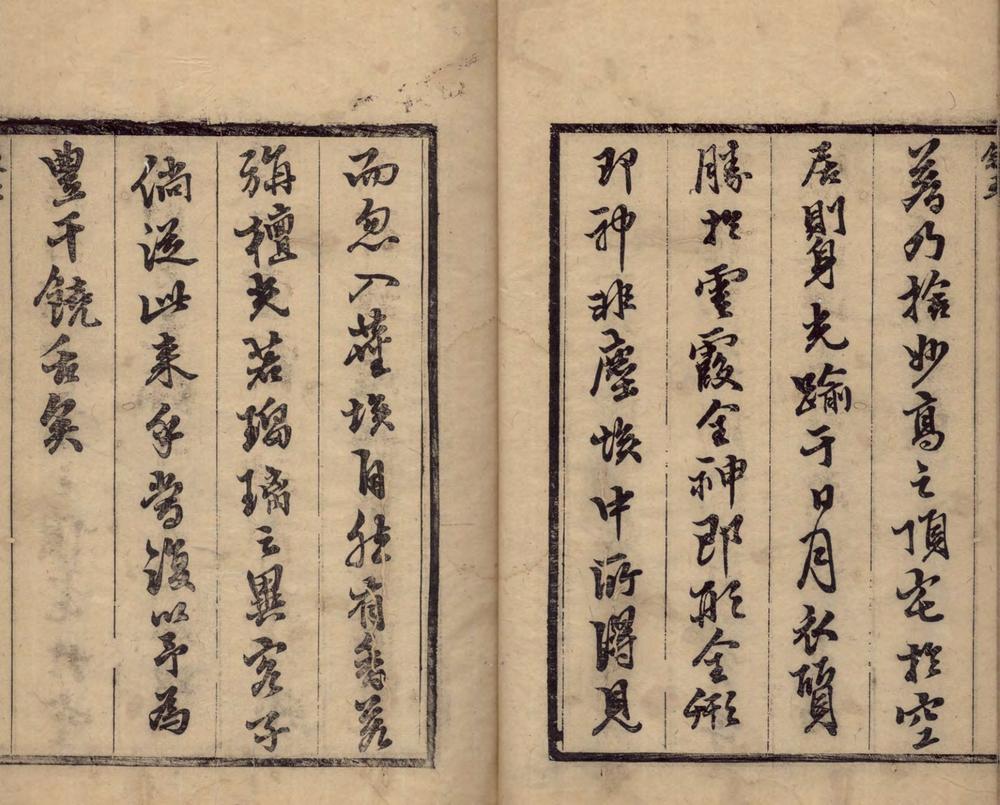 著乃捨妙高之頂宅於空
居則身光踰于日月衣質
勝於雲霞全神即形全形
即神非塵埃中所得見
而忽入塵埃自然有香若
旃檀光若瑠璃之異客子
倘從此來乎當復以予為
豐干饒舌矣